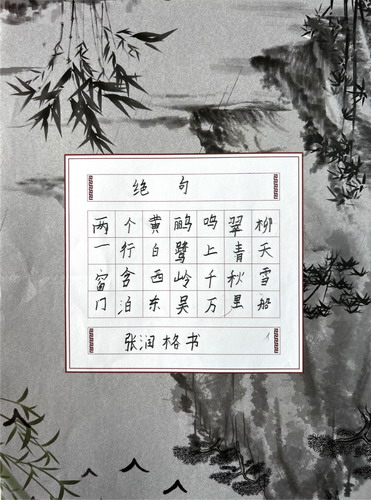 绝句
两个黄鹂鸣翠柳
一行白鹭上青天
窗含西岭千秋雪
门泊东吴万里船
张润格书